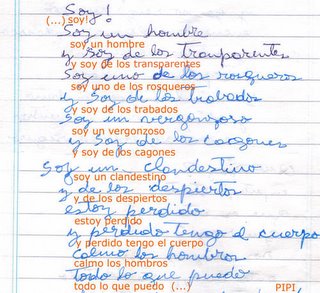 Soy!
(...) soy!
Soy un hombre
soy un hombre
y soy de los tranparentes
y soy de los transparentes
Soy uno de los rosqueros
soy uno de los rosqueros
y Soy de los trabados
y soy de los trabados
Soy un vergonzoso
soy un vergonzoso
y Soy de los cagones
y soy de cagones
Soy un clandestino
soy un clandestino
y de los despiertos
y de los despiertos
estoy perdido
estoy perdido
y perdido tengo el cuerpo
y perdido tengo el cuerpo
calmo los hombros
calmo los hombros
todo lo que puedo
todo lo que puedo (...) PIPI